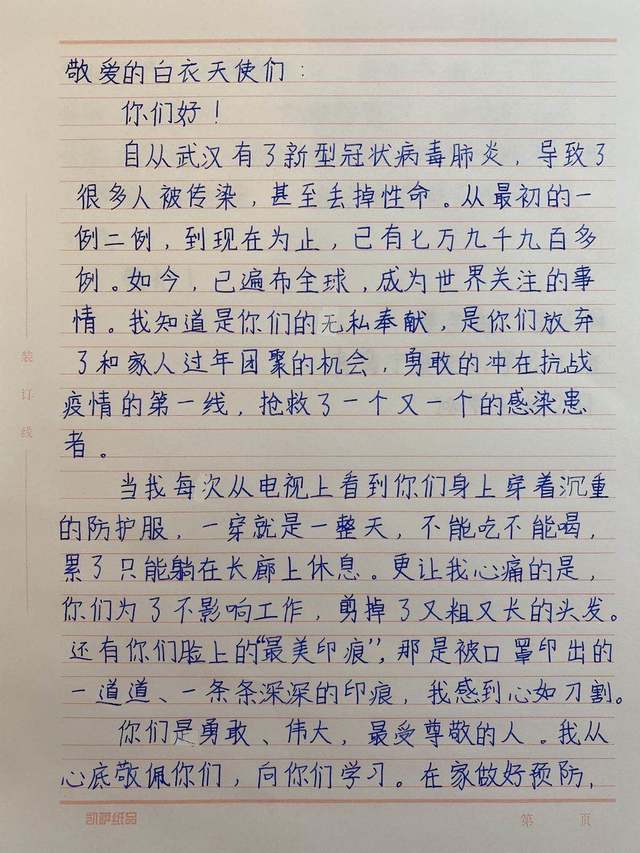 敬爱的白衣天使们：
你们好！
自从武汉有了新型冠状病毒肺炎，导致了
很多人被传染，甚至丢掉性命。从最初的一
例二例，到现在为止，已有七万九千九百多
例。如今，已遍布全球，成为世界关注的事
情。我知道是你们的无私奉献，是你们放弃
了和家人过年团聚的机会，勇敢的冲在抗战
疫情的第一线，抢救了一个又一个的感染患
者。
当我每次从电视上看到你们身上穿着沉重
的防护服，一穿就是一整天，不能吃不能喝，
累了只能躺在长廊上休息。更让我心痛的是，
你们为了不影响工作，剪掉了又粗又长的头发。
还有你们脸上的“最美印痕”，那是被口罩印出的
一道道、一条条深深的印痕，我感到心如刀割。
你们是勇敢、伟大，最受尊敬的人。我从
心底敬佩你们，向你们学习。在家做好预防，
装订线
凯萨纸品
第 页